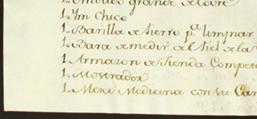 1. Embudo grande de cobre
1. Ym Chico
1. Barilla de hierro p.ª limpiar
1. Bara de medir de el fiel de la
1. Armazon de tienda Compe
1. Mostrador
1. Mesa Medicina con su Ca